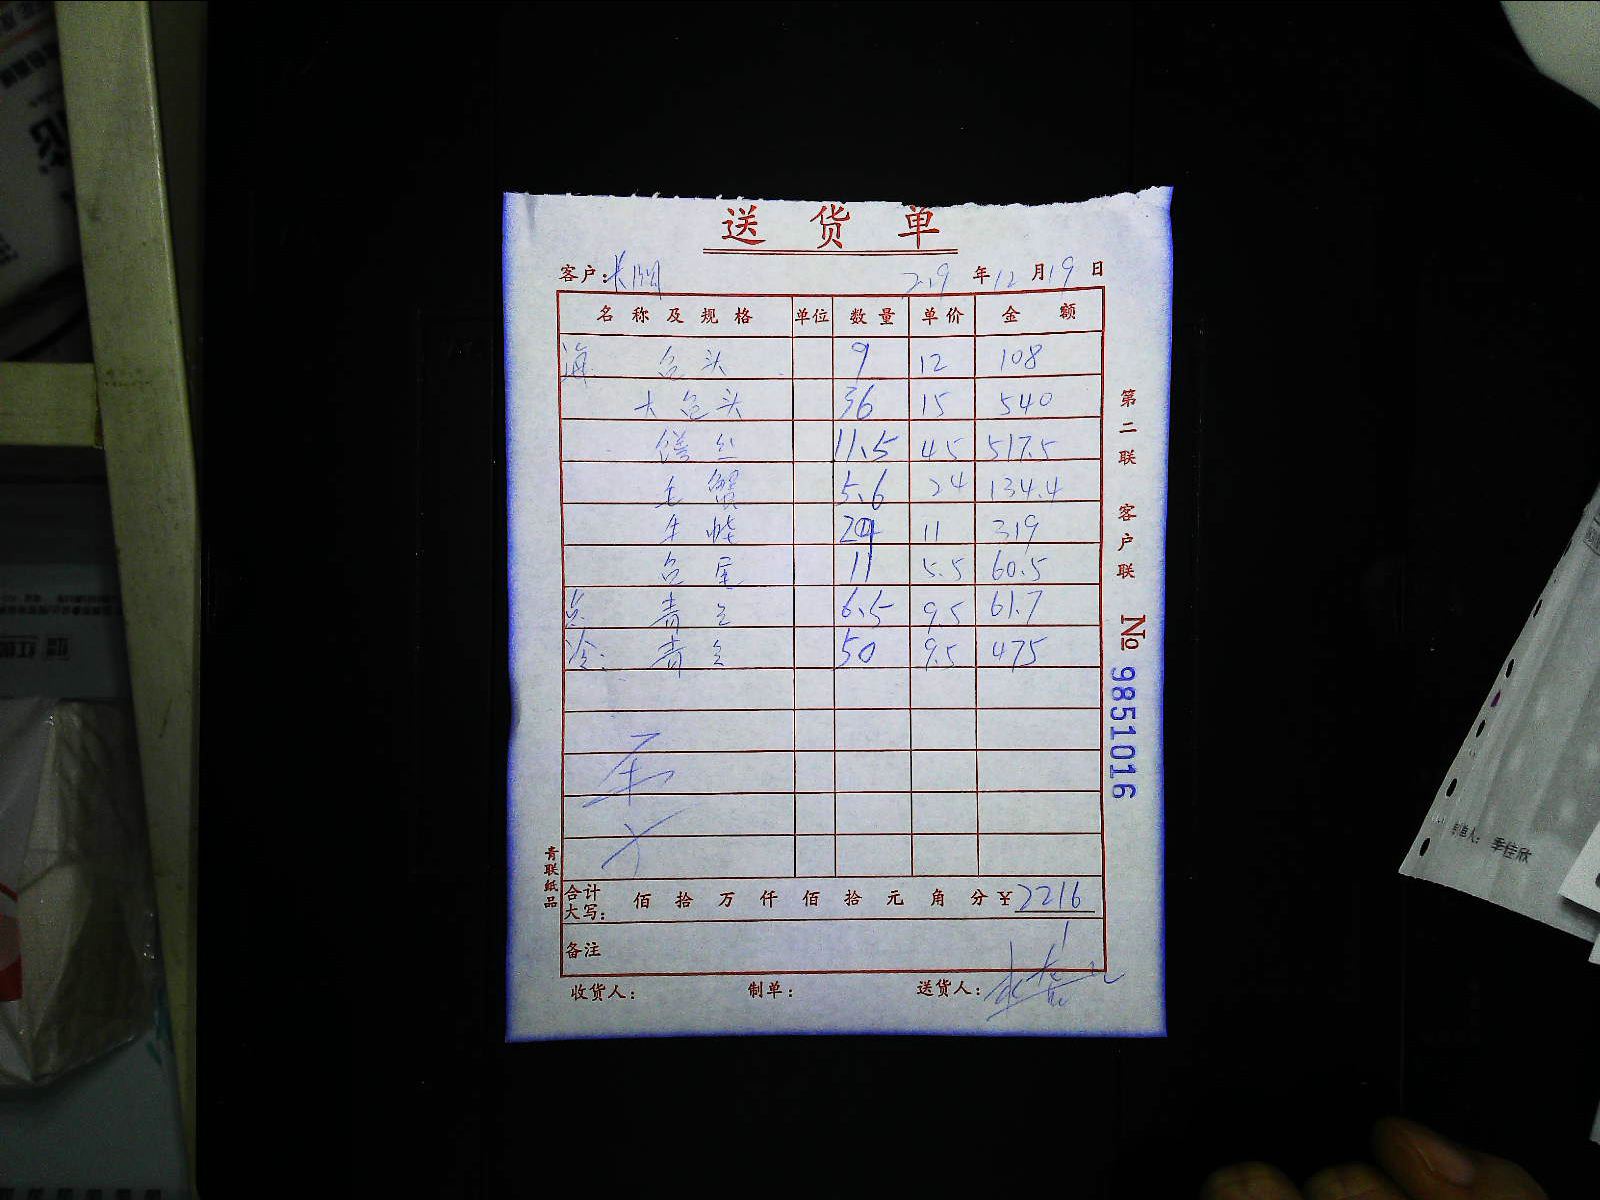 送货单
客户: 219年12月19日
名称及规格 单位 数量 单价 金额
海 包头 9 12 108
大包头 36 15 540
11.5 45 517.5
毛蟹 5.6 24 134.4
29 11 319
11 5.5 60.5
点 青 6.5 9.5 61.7
冷: 青 50 9.5 475
合计大写: 佰拾万仟佰拾元角分¥2216
备注
收货人: 制单: 送货人:
第二联 客户联 № 9851016
青联纸品
制单人: 季佳欣